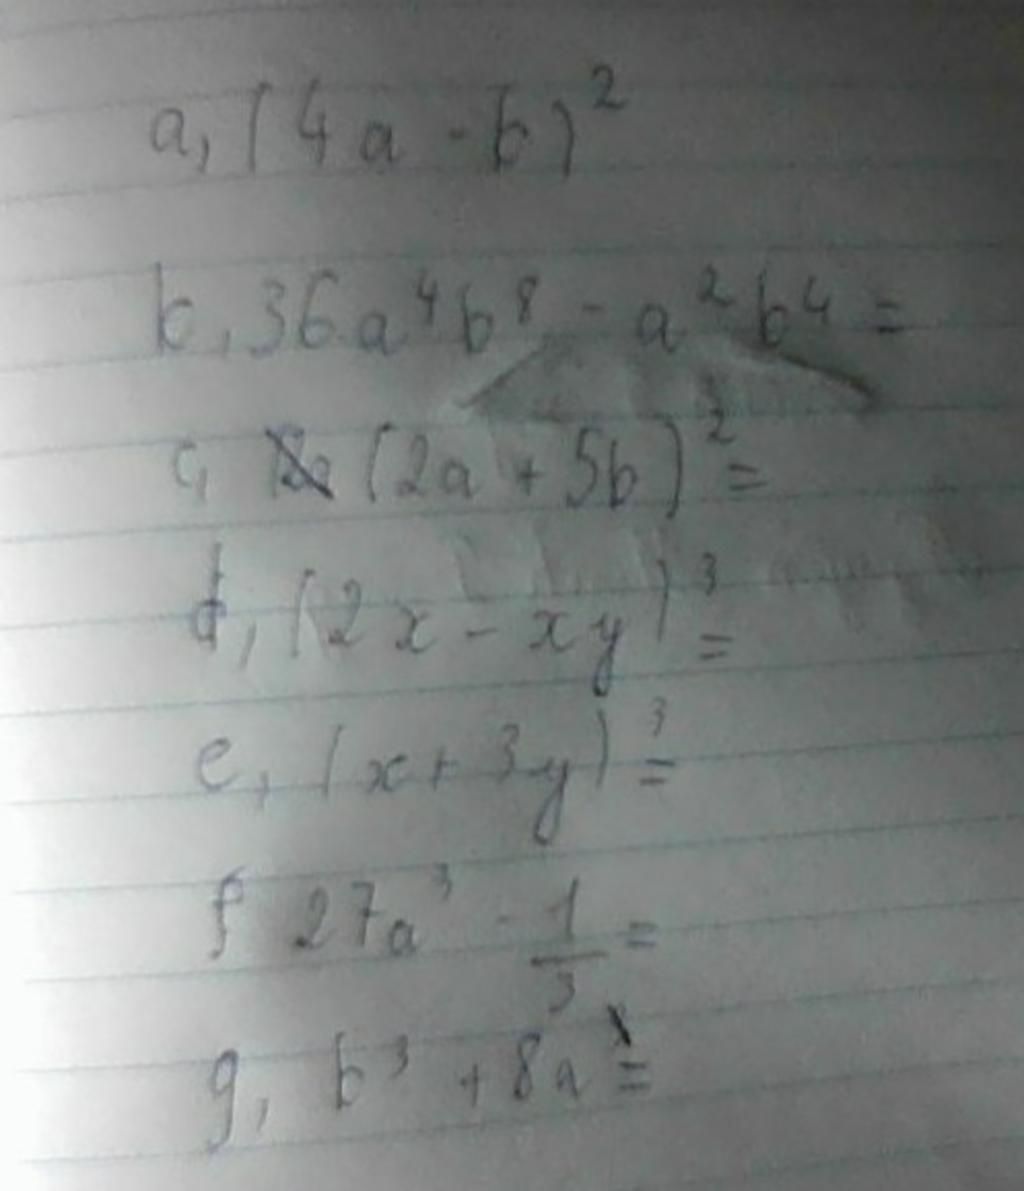 a, (4a - b)²
b, 36a⁴b⁸ - a²b⁴ =
c, (2a + 5b)² =
d, (2x - xy)³ =
e, (x + 3y)³ =
f 27a³ - 1/3 =
g, b³ + 8a =